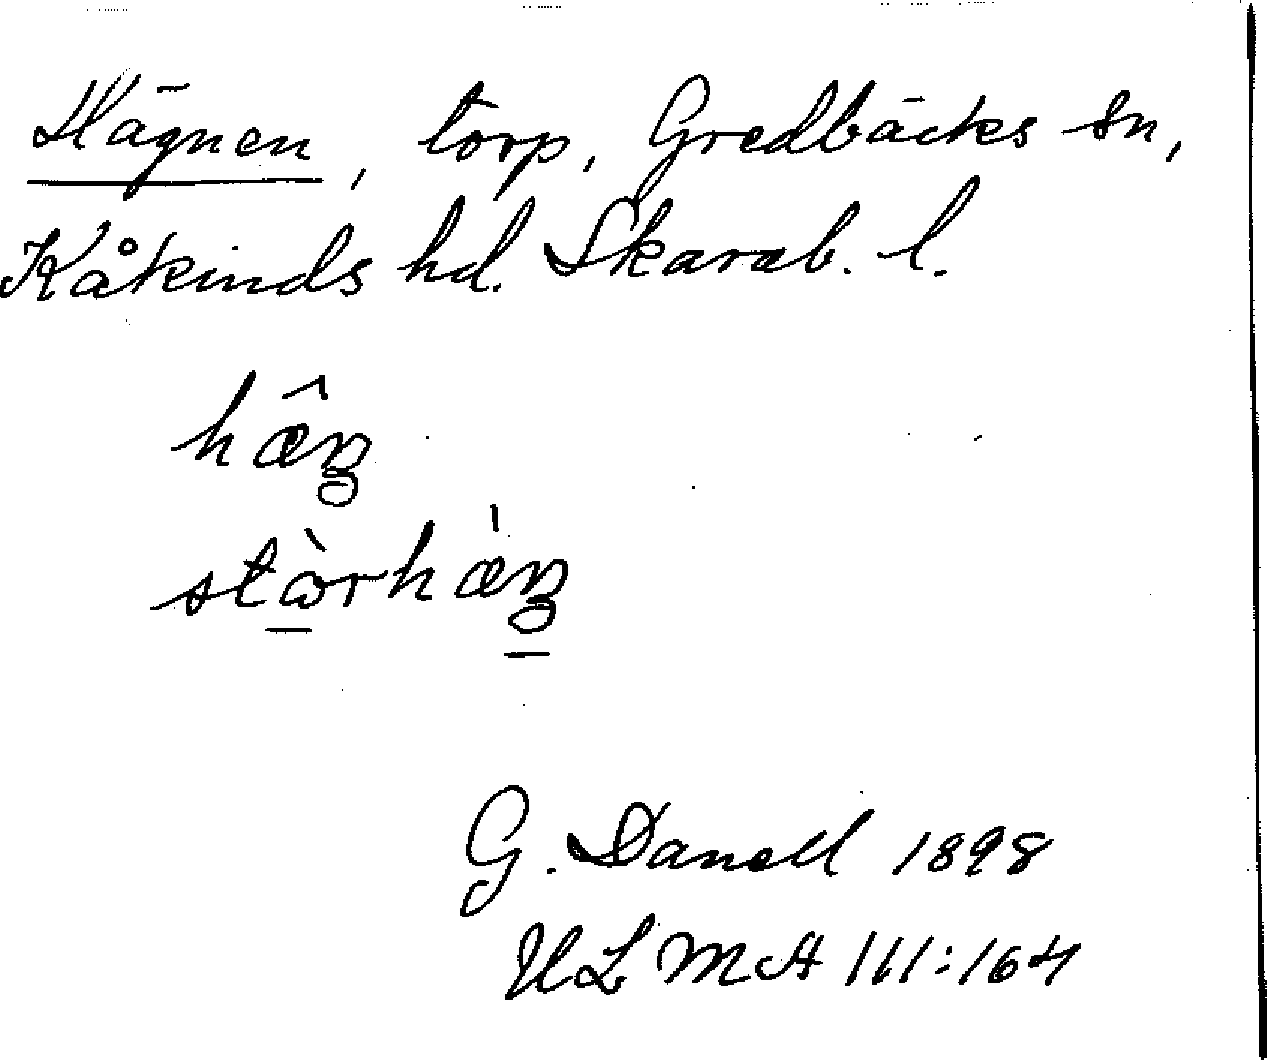 Hägnen, torp, Gredbäcks sn,
Kåkinds hd. Skarab. l.
G. Danell 1898
ULMA 111:164